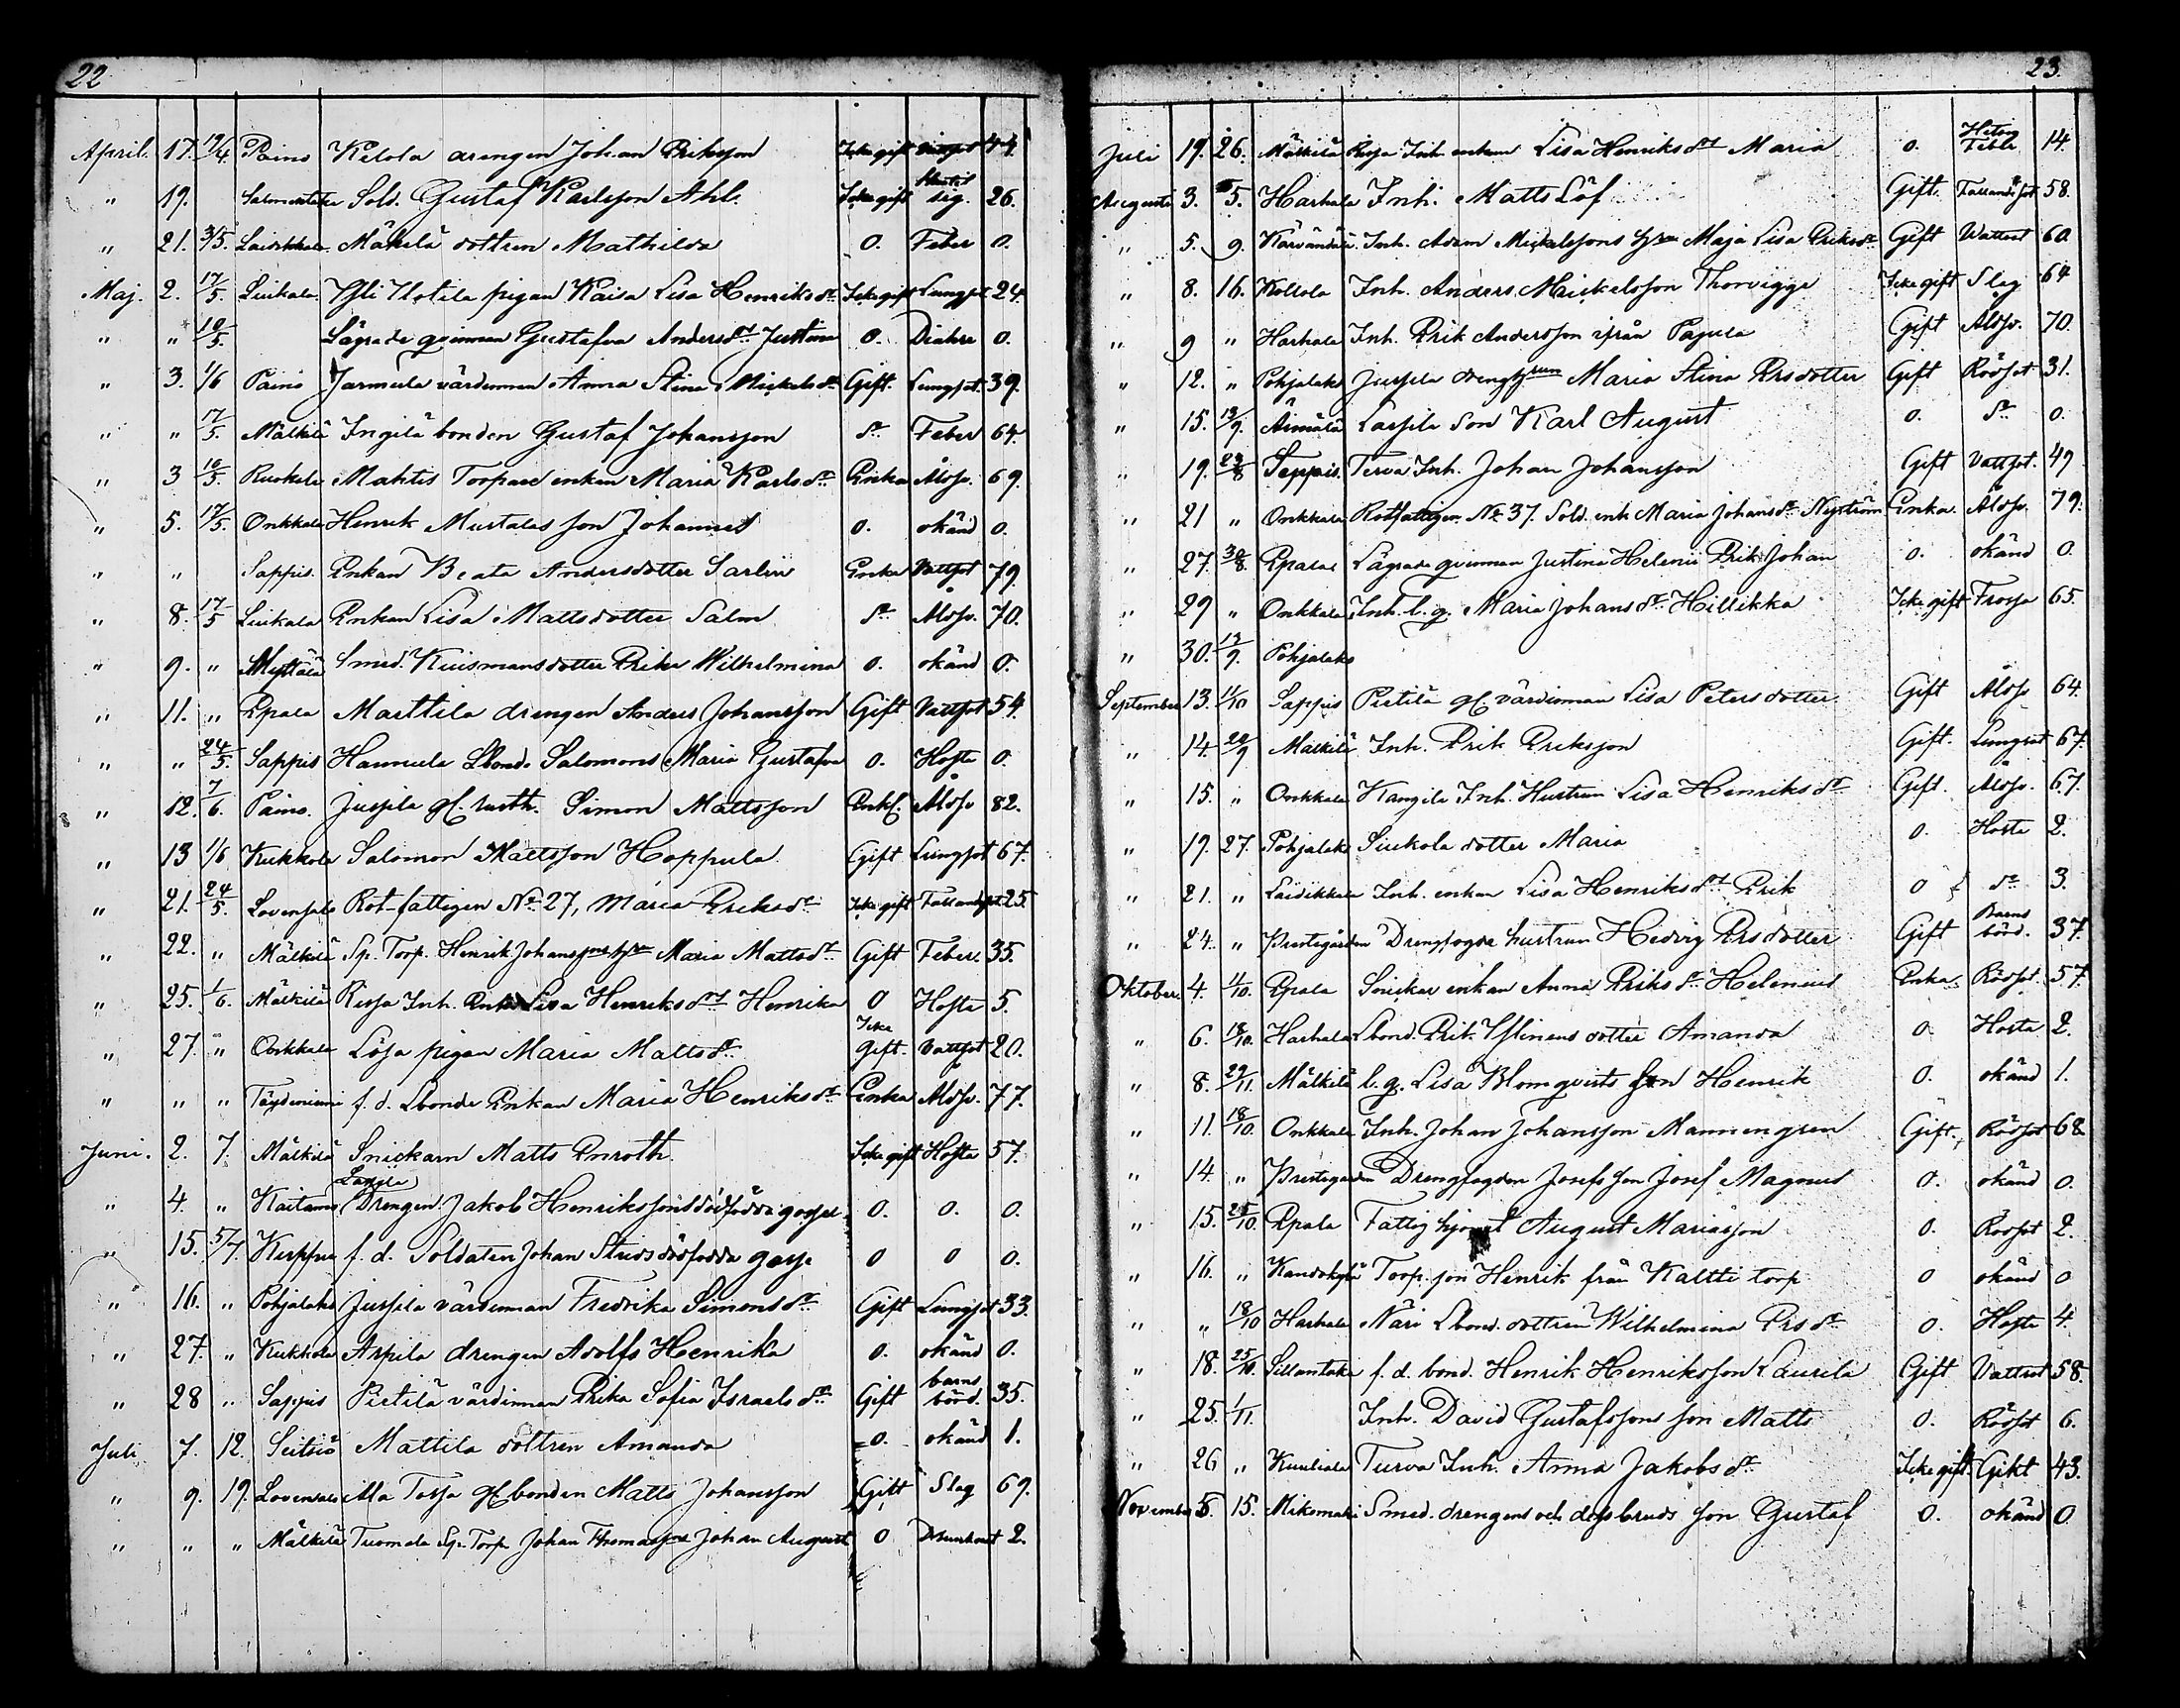 22
April. 17. 19/4 Paino Kelola drengen Johan Eriksson Icke gift 44.
" 19. Sold. Gustaf Karlsson Ahl. Icke gift sig. 26.
" 21. 3/5. Laidikkala Mäkilä dottren Mathilda 0. Feber 0.
Maj. 2. 17/5. Liukala pigan Kaisa Lisa Henriksdr Icke gift Lungsot 24.
" " 10/5. Lägrade qvinnan Gustafva Andersdrs Justina 0. Diahre 0.
" 3. 1/6 Paino Jarmula värdinnan Anna Stina Mickelsdr Gift. Lungsot. 39.
" " 17/5. Mälkilä Ingilä bonden Gustaf Johansson do Feber 64.
" 3 10/5. Ruokola Mahtis Torpare enkan Maria Karlsdr Enka Åldr. 69.
" 5. 17/5. Onkkala Henrik Mustalas son Johannes 0. okänd 0.
" " Sappis. Enkan Beata Andersdotter Sarlin Enka Vattsot 79.
" 8. 17/5 Liukala Enkan Lisa Mattsdotter Salm do Åldr. 70.
" 9. " Smed. Kuismans dotter Erika Wilhelmina 0. okänd 0.
" 11. " Epala Marttila drengen Anders Johansson Gift Vattsot 54.
" " 24/5. Sappis Hannula Lbond. Salomons Maria Gustafva 0. Hosta 0.
" 12. 7/6. Paino. Jussila gl. Simon Mattsson Enkl. Åldr 82.
" 13 1/6 Kukkola Salomon Mattsson Hoppula Gift Lungsot 67.
" 21. 24/5. Lovensalo Rot-fattigen No 27, Maria Eriksdr Icke gift Fallandsot 25.
" 22. " Mälkilä Sp. Torp. Henrik Johanssons hstr Maria Mattsdr Gift Feber. 35.
" 25. 1/6. Mälkilä Rissa Inh. Enkan Lisa Henriksdrs Henrika 0 Hosta 5.
" 27. " Onkkala Lösa pigan Maria Mattsdr Icke gift. Vattsot 20.
" " " f. d. Lbonde Enkan Maria Henriksdr Enka Åldr. 77.
Juni. 2. 7. Mälkilä Snickarn Matts Enroth. Icke gift Hosta 57.
" 4. " Kaitamo Lassila Drengen Jakob Henrikssons dödfödde gosse 0. 0. 0.
" 15. 5/7. f. d. Soldaten Johan Strids dödfödda gosse 0 0 0.
" 16. " Pohjalaks Jussila värdinnan Fredrika Simonsdr Gift Lungsot 33.
" 27. " Kukkola Arpila drengen Adolfs Henrika 0. okänd 0.
" 28 " Sappis Pietilä värdinnan Erika Sofia Israelsdr Gift barns börd. 35.
Juli 7. 12. Seitiö Mattila dottren Amanda 0. okänd 1.
" 9. 19. Lovensalo Ala Tossa gl. bonden Matts Johansson Gift Slag 69.
" " " Mälkilä Tuomola Sp. Torp. Johan Thomassons Johan August 0 2.
23.
Juli 19. 26. Mälkilä Rissa Inh. enkan Lisa Henriksdrs Maria 0. Feber 14.
Augusti 3. 5. Harhala Inh. Matts Löf Gift. Fallandsot 58.
" 5. 9. Inh. Adam Mickelssons hstru Maja Lisa Eriksdr Gift Vattsot 60.
" 8. 16. Kollola Inh. Anders Mickelsson Thorvigge Icke gift Slag 64
" 9 " Harhala Inh. Erik Andersson ifrån Papula Gift Åldr. 70.
" 12. " Pohjalaks Jussila drenghstrun Maria Stina Ersdotter Gift Rödsot 31.
" 15. 13/9. Äimälä Lassila Son Karl August 0. do 0.
" 19. 23/8 Seppis. Terva Inh. Johan Johansson Gift Vattsot. 49
" 21 " Onkkala Rotfattigen No 37. Sold. enk Maria Johansdr Nyström Enka. Åldr. 79.
" 27. 30/8. Epaal Lägrade qvinnan Justina Helenii Erik Johan 0. okänd 0.
" 29 " Onkkala Inh. l. q. Maria Johansdr Hillikka Icke gift Frossa 65.
" 30. 13/9. Pohjalaks
September 13. 11/10 Sappis Pietilä gl. värdinnan Lisa Petersdotter Gift Åldr 64.
" 14. 20/9 Mälkilä Inh. Erik Eriksson Gift. Lungsot 67.
" 15. " Onkkala Kangila Inh. Hustrun Lisa Henriksdr Gift. Åldr. 67.
" 19. 27. Pohjalaks Siukola dotter Maria 0. Hosta 2.
" 21. " Laidikkala Inh. enkan Lisa Henriksdrs Erik 0 do 3.
" 24. " Prestgården Drengfogde hustrun Hedvig Ersdotter Gift Barns börd. 37.
Oktober. 4. 11/10. Epala Snickar enkan Anna Eriksdr Helenius Enka. Rödsot. 57.
" 6. 18/10. Harhala Lbond. Erik Yllinens dotter Amanda 0. Hosta 2.
" 8. 29/11. Mälkilä l. q. Lisa Blomqvists son Henrik 0. okänd 1.
" 11. 18/10. Onkkala Inh. Johan Johansson Mannengren Gift. Rödsot 68
" 14. " Prestegården Drengfogden Josefs son Josef Magnus 0. okänd 0.
" 15. 25/10. Epala Fattig hjonet August Mariasson 0. Rödsot 2.
" 16. " Kandokylä Torp. son Henrik från Kaltti torp 0 okänd 0
" " 18/10 Harhala Näri Lbond. dottren Wilhelmina Ersdr 0. Hosta 4.
" 18. 25/10. Sillantaka f. d. bond. Henrik Henriksson Laurila Gift Vattsot 58.
" 25. 1/11. Inh. David Gustafssons son Matts 0. Rödsot 6.
" 26 " Kuuliala Turva Inh. Anna Jakobsdr Icke gift. Gikt 43.
November 5. 15. Mikomäki Smed. drengens och dess bruds son Gustaf 0. okänd 0